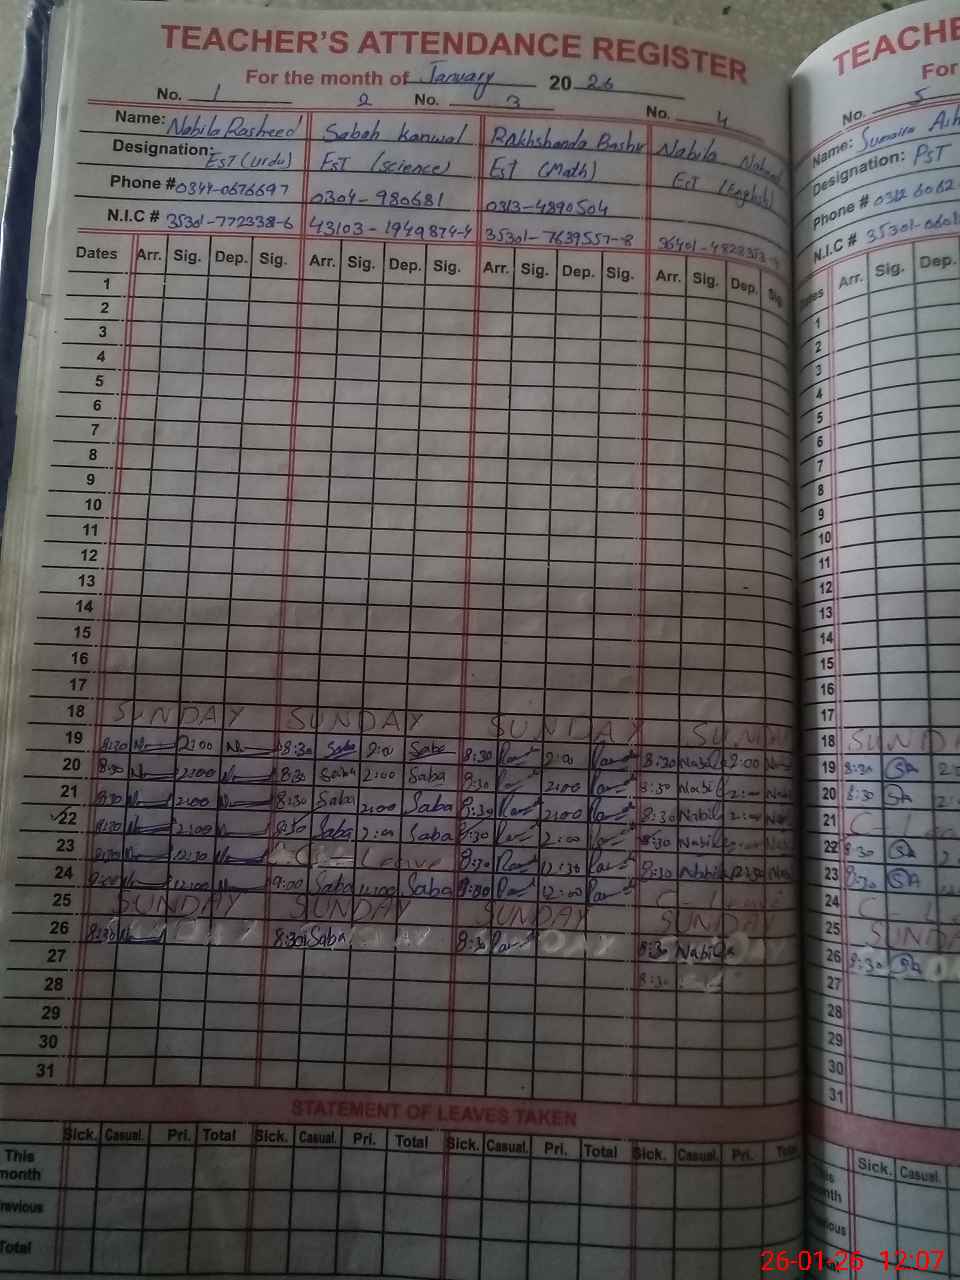 TEACHER'S ATTENDANCE REGISTER
For the month of January 2026
No. 1 2 No. 3 No. 4
Name: Nabila Rasheed Sabah Kanwal Rakhshanda Bashir Nabila
Designation: EST (Urdu) EST (science) EST (Math) EST (English)
Phone # 0344-0676697 0304-980681 0313-4890504
N.I.C # 35301-772338-6 43103-1949874-4 35301-7639557-8
Dates Arr. Sig. Dep. Sig. Arr. Sig. Dep. Sig. Arr. Sig. Dep. Sig. Arr. Sig. Dep. Sig
1
2
3
4
5
6
7
8
9
10
11
12
13
14
15
16
17
18 SUNDAY SUNDAY SUNDAY
19 8:30 2:00 8:30 Saba 2:00 Saba 8:30 2:00 8:30 Nabil 2:00
20 8:30 2:00 8:30 Saba 2:00 Saba 8:30 2:00 8:30 Nabil 2:00
21 8:30 2:00 8:30 Saba 2:00 Saba 8:30 2:00 8:30 Nabil 2:00
22 8:30 2:00 8:30 Saba 2:00 Saba 8:30 2:00 8:30 Nabil
23 8:30 12:30 C-Leave 8:30 12:30 8:30 Nabila 12:30
24 9:00 12:00 9:00 Saba 12:00 Saba 12:00 C-Leave
25 SUNDAY SUNDAY SUNDAY SUNDAY
26 8:30 8:30 Saba 8:30 8:30 Nabila
27 8:30
28
29
30
31
STATEMENT OF LEAVES TAKEN
Sick. Casual. Pri. Total Sick. Casual. Pri. Total Sick. Casual. Pri. Total Sick. Casual. Pri. Total
This month
revious
Total
TEACHE
For
No. 5
Name: Sumaira
Designation: PST
Phone # 0312 6062
N.I.C # 35301-0601
Arr. Sig. Dep.
1
2
3
4
5
6
7
8
9
10
11
12
13
14
15
16
17
18 SUND
19 8:30 SA
20 8:30 SA
21 C-Lea
22 8:30 SA
23 8:30 SA
24 C-L
25 SUND
26 8:30 SA
27
28
29
30
31
Sick. Casual.
26-01-26 12:07